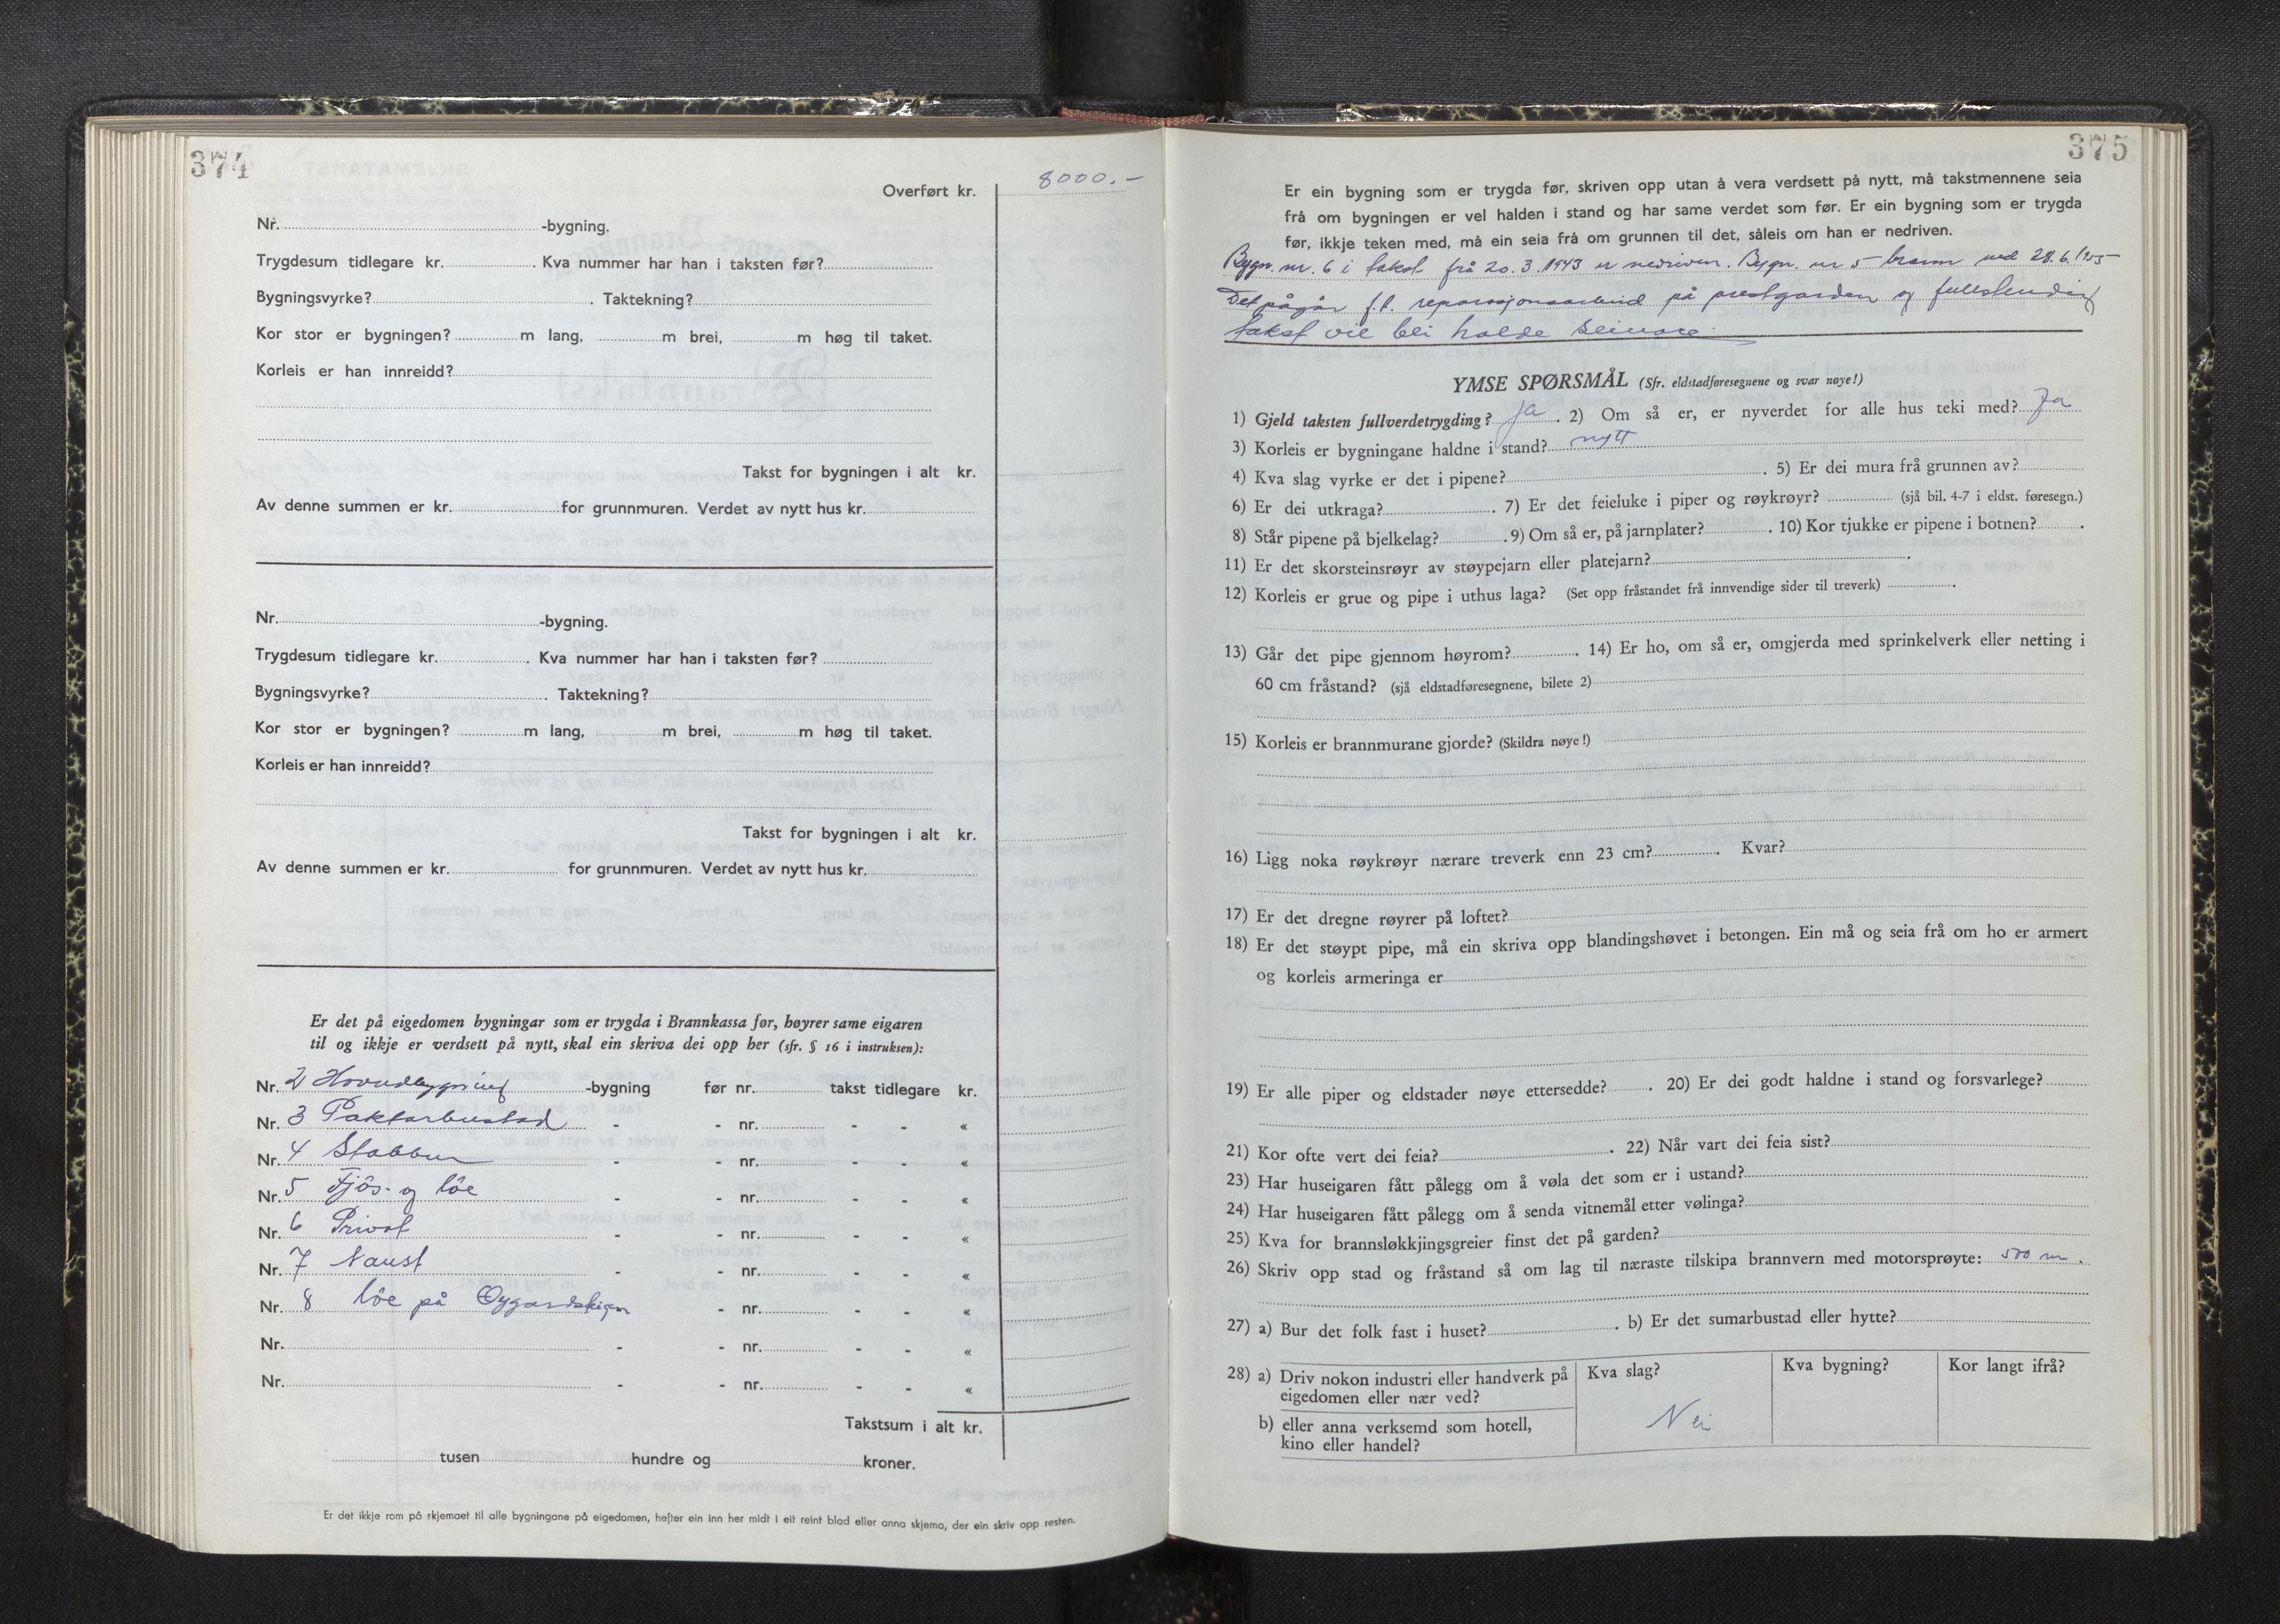 374
Overført kr. 8000.-
Nr. -bygning.
Trygdesum tidlegare kr. . Kva nummer har han i taksten før?
Bygningsvyrke? . Taktekning?
Kor stor er bygningen? m lang, m brei, m høg til taket.
Korleis er han innreidd?
Takst for bygningen i alt kr.
Av denne summen er kr. for grunnmuren. Verdet av nytt hus kr.
Nr. -bygning.
Trygdesum tidlegare kr. . Kva nummer har han i taksten før?
Bygningsvyrke? . Taktekning?
Kor stor er bygningen? m lang, m brei, m høg til taket.
Korleis er han innreidd?
Takst for bygningen i alt kr.
Av denne summen er kr. for grunnmuren. Verdet av nytt hus kr.
Er det på eigedomen bygningar som er trygda i Brannkassa før, høyrer same eigaren
til og ikkje er verdsett på nytt, skal ein skriva dei opp her (sfr. § 16 i instruksen):
Nr. 2 Hovudbygning -bygning før nr. takst tidlegare kr.
Nr. 3 Paktarbustad - - nr. - - «
Nr. 4 Stabbur - - nr. - - «
Nr. 5 Fjös- og löe - - nr. - - «
Nr. 6 Privat - - nr. - - «
Nr. 7 Naust - - nr. - - «
Nr. 8 löe på - nr. - - «
Nr. - - nr. - - «
Nr. - - nr. - - «
Takstsum i alt kr.
tusen hundre og kroner.
Er det ikkje rom på skjemaet til alle bygningane på eigedomen, hefter ein inn her midt i eit reint blad eller anna skjema, der ein skriv opp resten.
375
Er ein bygning som er trygda før, skriven opp utan å vera verdsett på nytt, må takstmennene seia
frå om bygningen er vel halden i stand og har same verdet som før. Er ein bygning som er trygda
før, ikkje teken med, må ein seia frå om grunnen til det, såleis om han er nedriven.
Bygn. nr. 6 i takst frå 20.3.1943 er nedriven. Bygn. nr 5 brann ned 28.6.1955
Det pågår f.t. reparasjonsarbeid på prestgarden og fullstendig
takst vil bli halde seinare.
YMSE SPØRSMÅL (Sfr. eldstadføresegnene og svar nøye!)
1) Gjeld taksten fullverdetrygding? ja . 2) Om så er, er nyverdet for alle hus teki med? Ja
3) Korleis er bygningane haldne i stand? nytt
4) Kva slag vyrke er det i pipene? . 5) Er dei mura frå grunnen av?
6) Er dei utkraga? . 7) Er det feieluke i piper og røykrøyr? (sjå bil. 4-7 i eldst. føresegn.)
8) Står pipene på bjelkelag? . 9) Om så er, på jarnplater? . 10) Kor tjukke er pipene i botnen? .
11) Er det skorsteinsrøyr av støypejarn eller platejarn? .
12) Korleis er grue og pipe i uthus laga? (Set opp fråstandet frå innvendige sider til treverk) .
13) Går det pipe gjennom høyrom? . 14) Er ho, om så er, omgjerda med sprinkelverk eller netting i
60 cm fråstand? (sjå eldstadføresegnene, bilete 2)
15) Korleis er brannmurane gjorde? (Skildra nøye!)
16) Ligg noka røykrøyr nærare treverk enn 23 cm? . Kvar?
17) Er det dregne røyrer på loftet?
18) Er det støypt pipe, må ein skriva opp blandingshøvet i betongen. Ein må og seia frå om ho er armert
og korleis armeringa er
19) Er alle piper og eldstader nøye ettersedde? . 20) Er dei godt haldne i stand og forsvarlege?
21) Kor ofte vert dei feia? . 22) Når vart dei feia sist?
23) Har huseigaren fått pålegg om å vøla det som er i ustand?
24) Har huseigaren fått pålegg om å senda vitnemål etter vølinga?
25) Kva for brannsløkkjingsgreier finst det på garden?
26) Skriv opp stad og fråstand så om lag til næraste tilskipa brannvern med motorsprøyte: 500 m .
27) a) Bur det folk fast i huset? . b) Er det sumarbustad eller hytte?
28) a) Driv nokon industri eller handverk på
eigedomen eller nær ved?
Kva slag? Kva bygning? Kor langt ifrå?
b) eller anna verksemd som hotell,
kino eller handel?
Nei